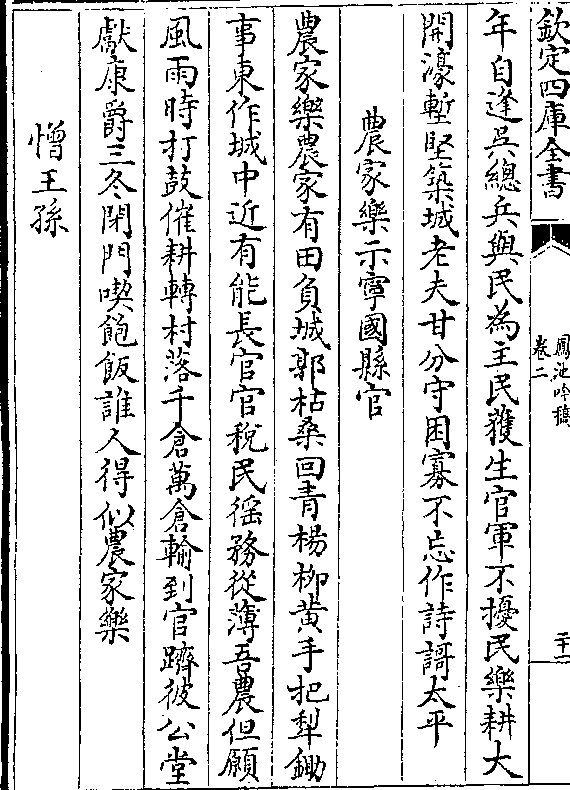 欽定四庫全書
鳳池吟稿
卷二
二十二
年自逢吳總兵與民為主民獲生官軍不擾民樂耕大
開濠塹堅築城老夫甘分守困寡不忘作詩謌太平
農家樂示寧國縣官
農家樂農家有田負城郭枯桑回青楊柳黃手把犁鋤
事東作城中近有能長官官稅民徭務從薄吾農但願
風雨時打鼓催耕轉村落千倉萬倉輸到官躋彼公堂
獻康爵三冬閉門喫飽飯誰人得似農家樂
憎王孫